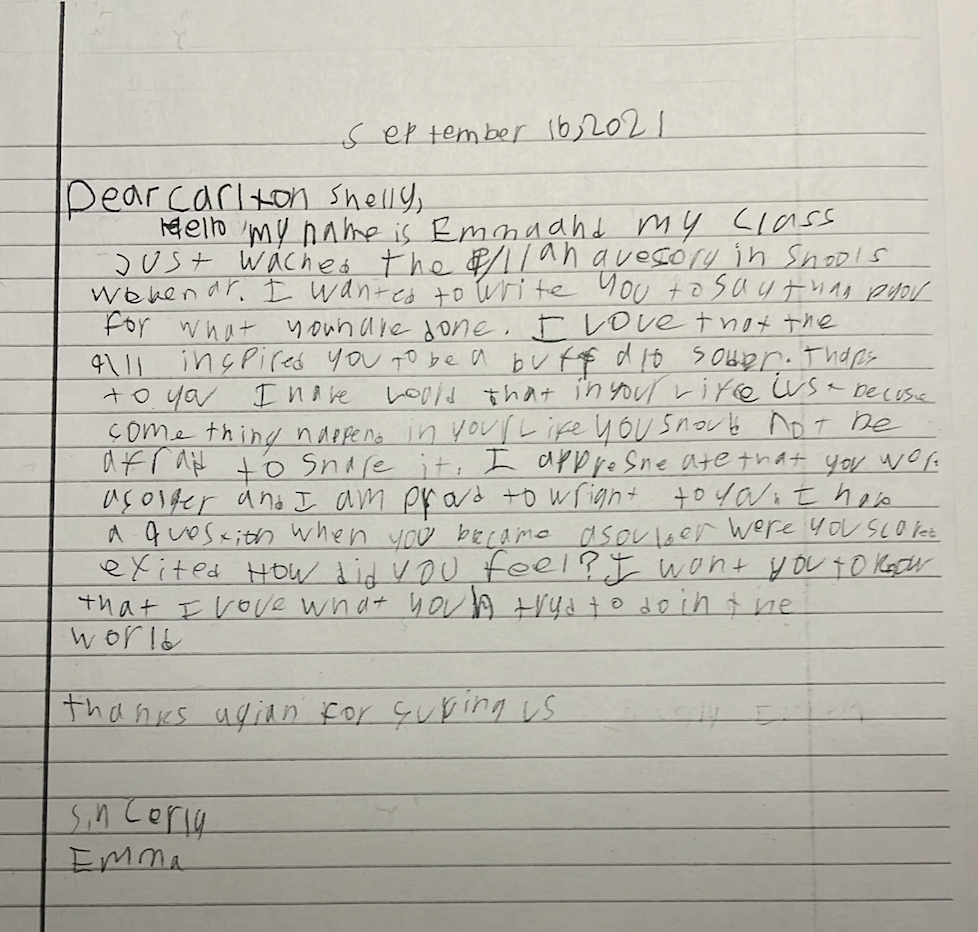 September 16,2021
Dear Carlton Shelly,
Hello my name is Emma and my class
Just wached the 9/11 an avesory in Shools
wekenar. I wanted to write you to say
for what you have done. I love that the
9/11 inspired you to be a buff d to
to you I have that in your Life Just becuse
something happend in your Life you should not be
afraid to share it. I appresheate that you wor
asolger and I am proud to wright to you. I have
a question when you became asoulder were you scared
exited How did you feel? I want you to know
that I love what you tryd to do in the
world
thanks agian for surving us
Sincerly
Emma